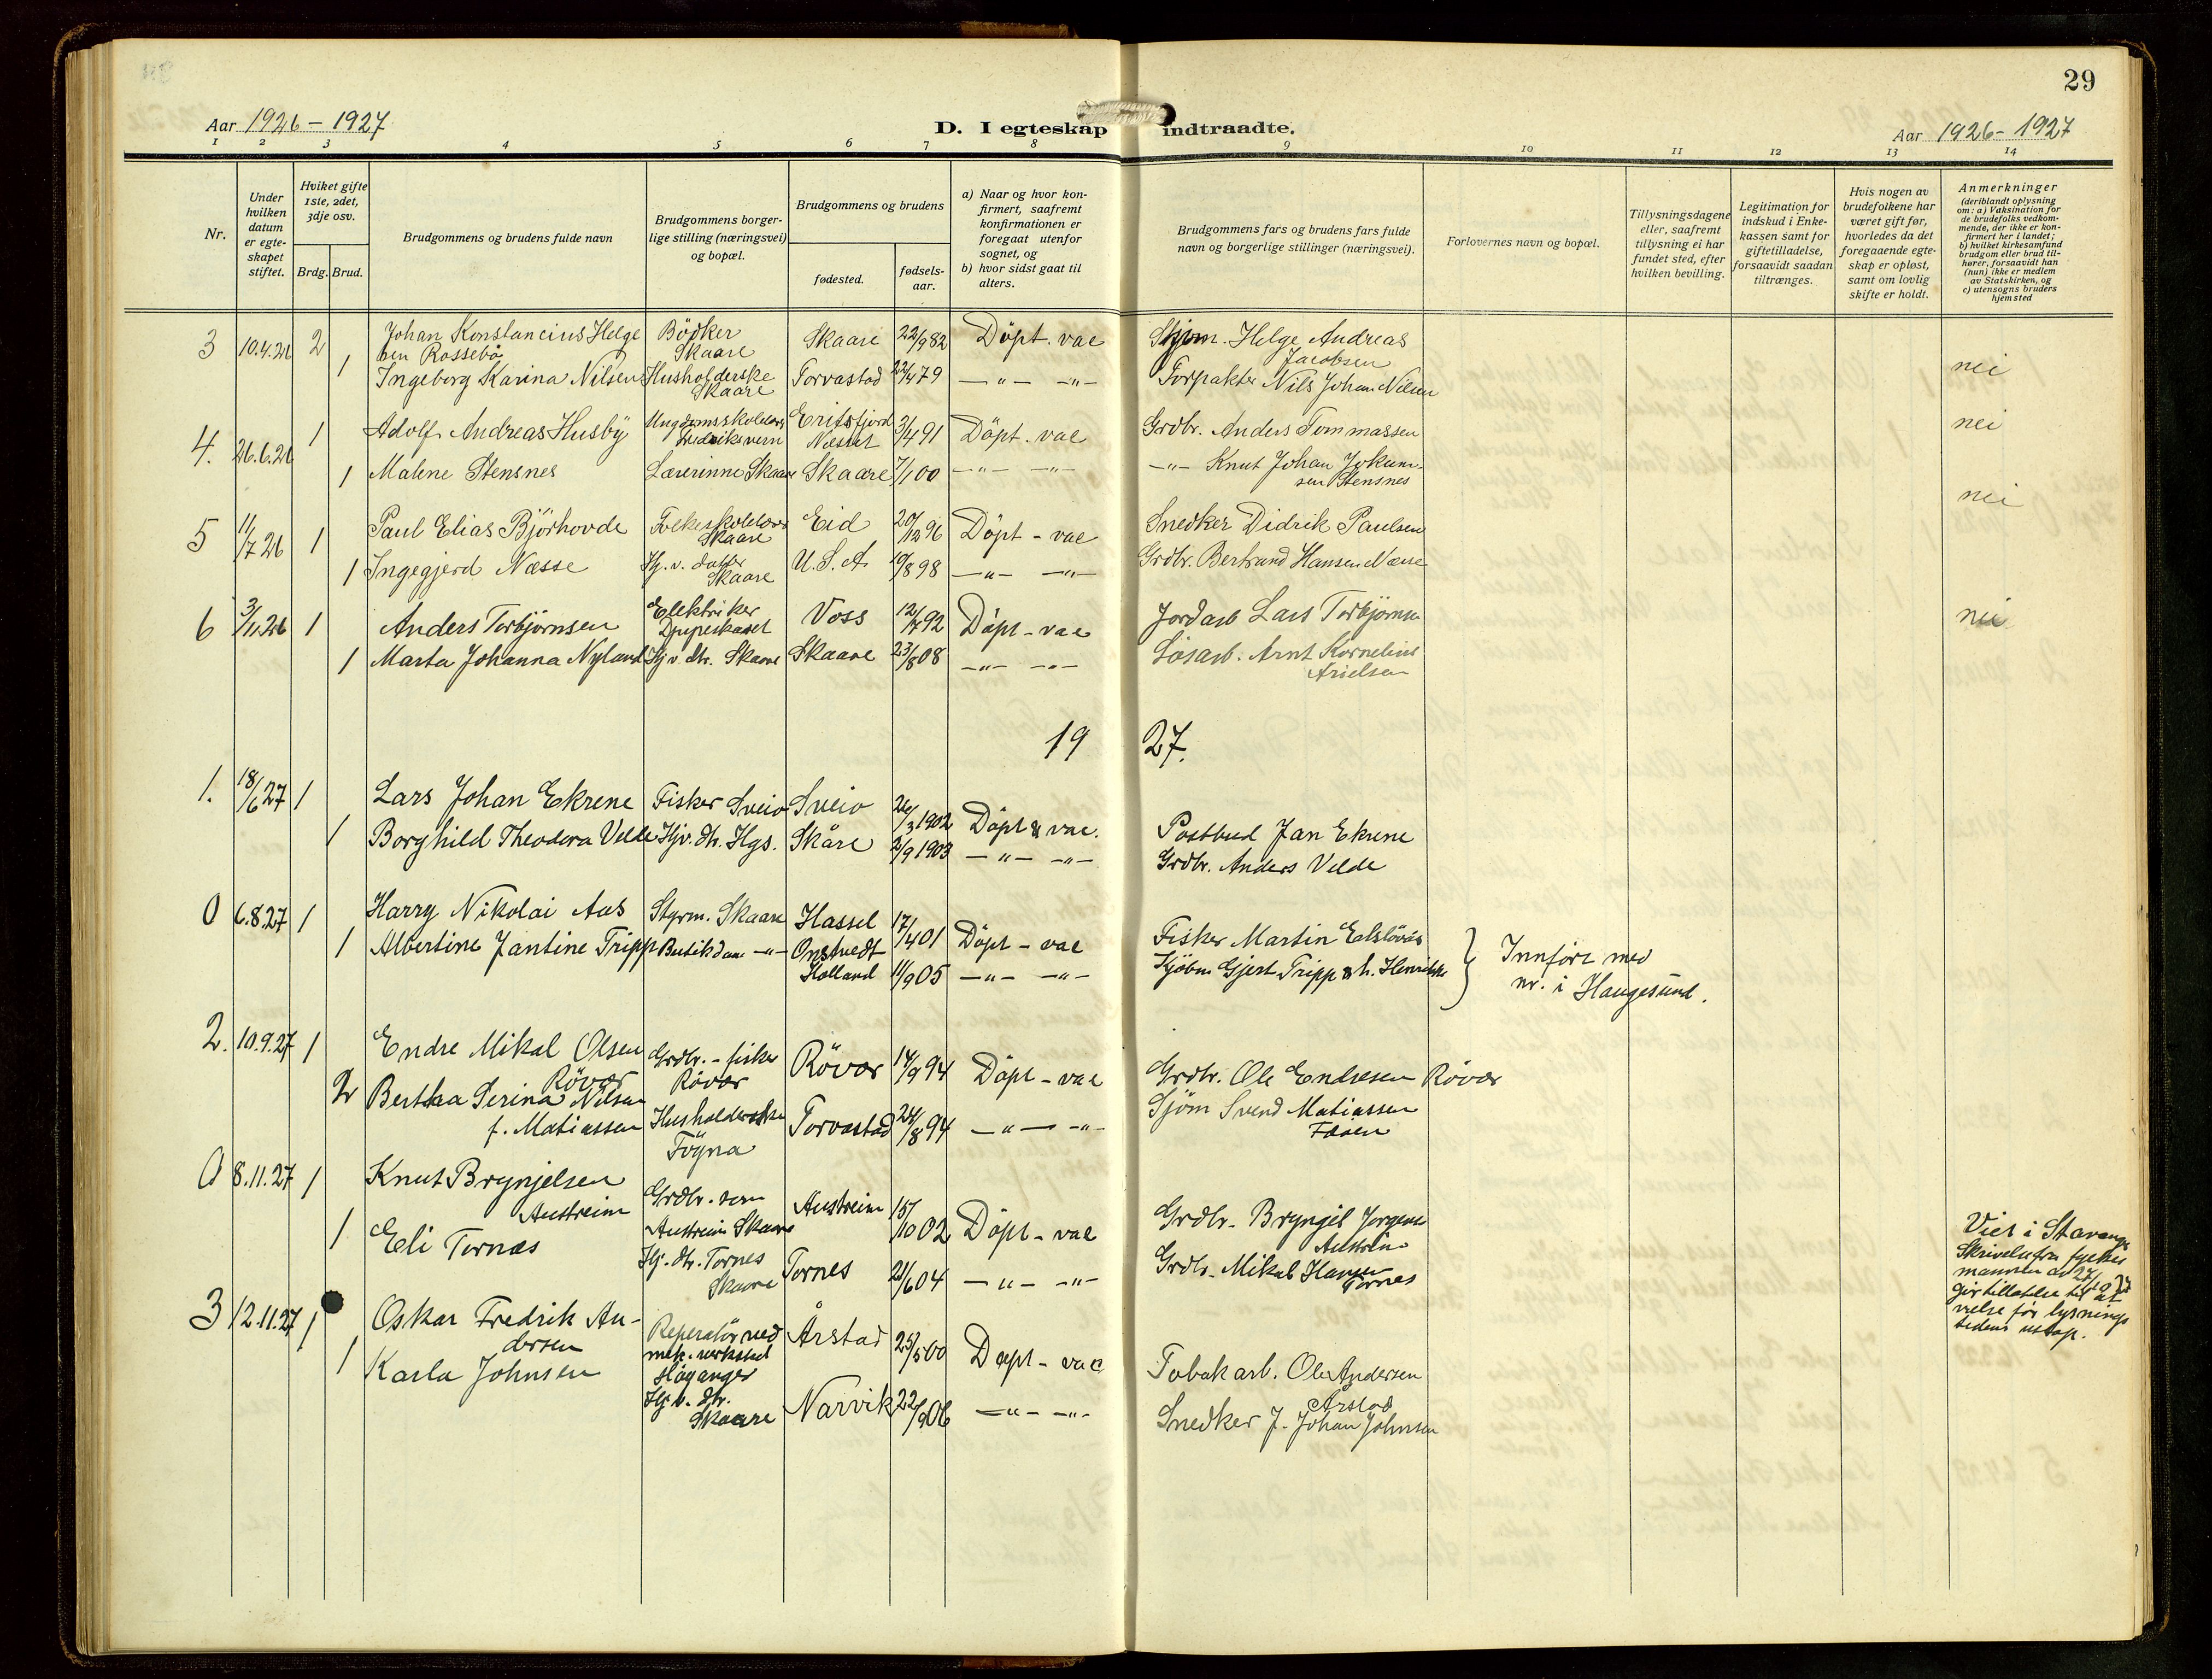 29
Aar 1926-1927
D. I egteskap indtraadte.
Aar 1926-1927
1 2 3 4 5 6 7 8 9 10 11 12 13 14
Nr.
Under
hvilken
datum
er egte-
skapet
stiftet.
Hviket gifte
1ste, 2det,
3dje osv.
Brdg. Brud.
Brudgommens og brudens fulde navn
Brudgommens borger-
lige stilling (næringsvei)
og bopæl.
Brudgommens og brudens
fødested.
fødsels-
aar.
a) Naar og hvor kon-
firmert, saafremt
konfirmationen er
foregaat utenfor
sognet, og
b) hvor sidst gaat til
alters.
Brudgommens fars og brudens fars fulde
navn og borgerlige stillinger (næringsvei).
Forlovernes navn og bopæl.
Tillysningsdagene
eller, saafremt
tillysning ei har
fundet sted, efter
hvilken bevilling.
Legitimation for
indskud i Enke-
kassen samt for
giftetilladelse,
forsaavidt saadan
tiltrænges.
Hvis nogen av
brudefolkene har
været gift før,
hvorledes da det
foregaaende egte-
skap er opløst,
samt om lovlig
skifte er holdt.
Anmerkninger
(deriblandt oplysning
om: a) Vaksination for
de brudefolks vedkom-
mende, der ikke er kon-
firmert her i landet;
b) hvilket kirkesamfund
brudgom eller brud til-
hører, forsaavidt han
(hun) ikke er medlem
av Statskirken, og
c) utensogns bruders
hjemsted
3 10.4.26 2 Johan Konstancius Helge
sen Rossebø
Bödker
Skaare
Skaare 22/9 82 Döpt. vac
Sjøm. Helge Andreas
Jacobsen
1 Ingeborg Karina Nilsen Husholderske
Skaare
Torvastad 22/4 79 -"- -"-
Forpakter Nils Johan Nilsen
nei
4. 26.6.26 1 Adolf Andreas Husby
Ungdomsskolelærer
Fredriksvern
Eritsfjord
Nesset
3/4 91 Döpt. vac
Grdbr. Anders Tommassen
nei
1 Malene Stensnes Lærerinne Skaare Skaare 7/1 00 -"- -"-
-"- Knut Johan Jokum-
sen Stensnes
5 11/7 26 1 Paul Elias Björhovde
Folkeskolelærer
Skaare
Eid 20/12 96 Döpt - vac
Snedker Didrik Paulsen
nei
1 Ingegjerd Næsse
Hj. v. datter
Skaare
U.S.A. 19/8 98 -"- -"-
Grdbr. Bertrand Hansen Næsse
6 3/11.26 1 Anders Torbjörnsen
Elektriker
Djupeskaret
Voss 12/7 92 Döpt - vac
Jordarb Lars Torbjörnsen
nei
1 Marta Johanna Nyland Hj v. dtr. Skaare Skaare 23/8 08 -"- -"-
Lösarb. Arnt Kornelius
Arielsen
1927.
1. 18/6 27 1 Lars Johan Ekrene Fisker Sveio Sveio 26/3 1902 Döpt & vac.
Postbud Jan Ekrene
1 Borghild Theodora Velde Hjv. dtr. Hgs. Skåre 2/9 1903 -"- -"-
Grdbr. Anders Velde
0 6.8.27 1 Harry Nikolai Aas Styrm. Skaare Hassel 17/4 01 Döpt - vac
Fisker Martin
1 Albertine Jantine Tripp Butikdame -"-
Onstvedt
Holland
11/9 05 -"- -"-
Kjöbm Gjert Tripp & h. Henrikke
Innført med
nr. i Haugesund.
2. 10.9.27 1 Endre Mikal Olsen
Rövær
Grdbr. - fisker
Rövær
Rövær 14/9 94 Döpt - vac
Grdbr. Ole Endresen Rövær
2 Bertha Serina Nilsen
f. Matiassen
Husholderske
Föyna
Torvastad 24/8 94 -"- -"-
Sjöm Svend Matiassen
Fæøen
0 8.11.27 1 Knut Brynjelsen
Austreim
Grdbr. sem
Austreim Skaare
Austreim 15/10 02 Döpt - vac
Grdbr. Bryngel Jorgensen
Austreim
1 Eli Tornæs
Hj. dtr. Tornes
Skaare
Tornes 21/6 04 -"- -"-
Grdbr. Mikal Hansen
Tornes
Viet i Stavanger
Skrivelse fra fylkes
mannen av 27/10 27
gir tillatelse til at
vielse før lysnings
tidens utløp.
3 12.11.27 1 Oskar Fredrik An-
dersen
Reperatör ved
mek. verksted
Höyanger
Årstad 25/5 00 Döpt - vac
Tobakarb. Ole Andersen
Årstad
1 Karla Johnsen
Hj v. dtr.
Skaare
Narvik 22/9 06 -"- -"-
Snedker J. Johan Johnsen